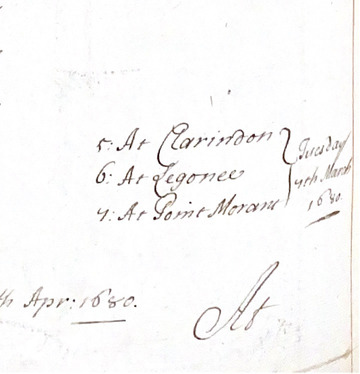 5: At Clarindon
6: At Legonee
7: At Point Morant
Tuesday
7th March
1680.
th Apr: 1680.
At